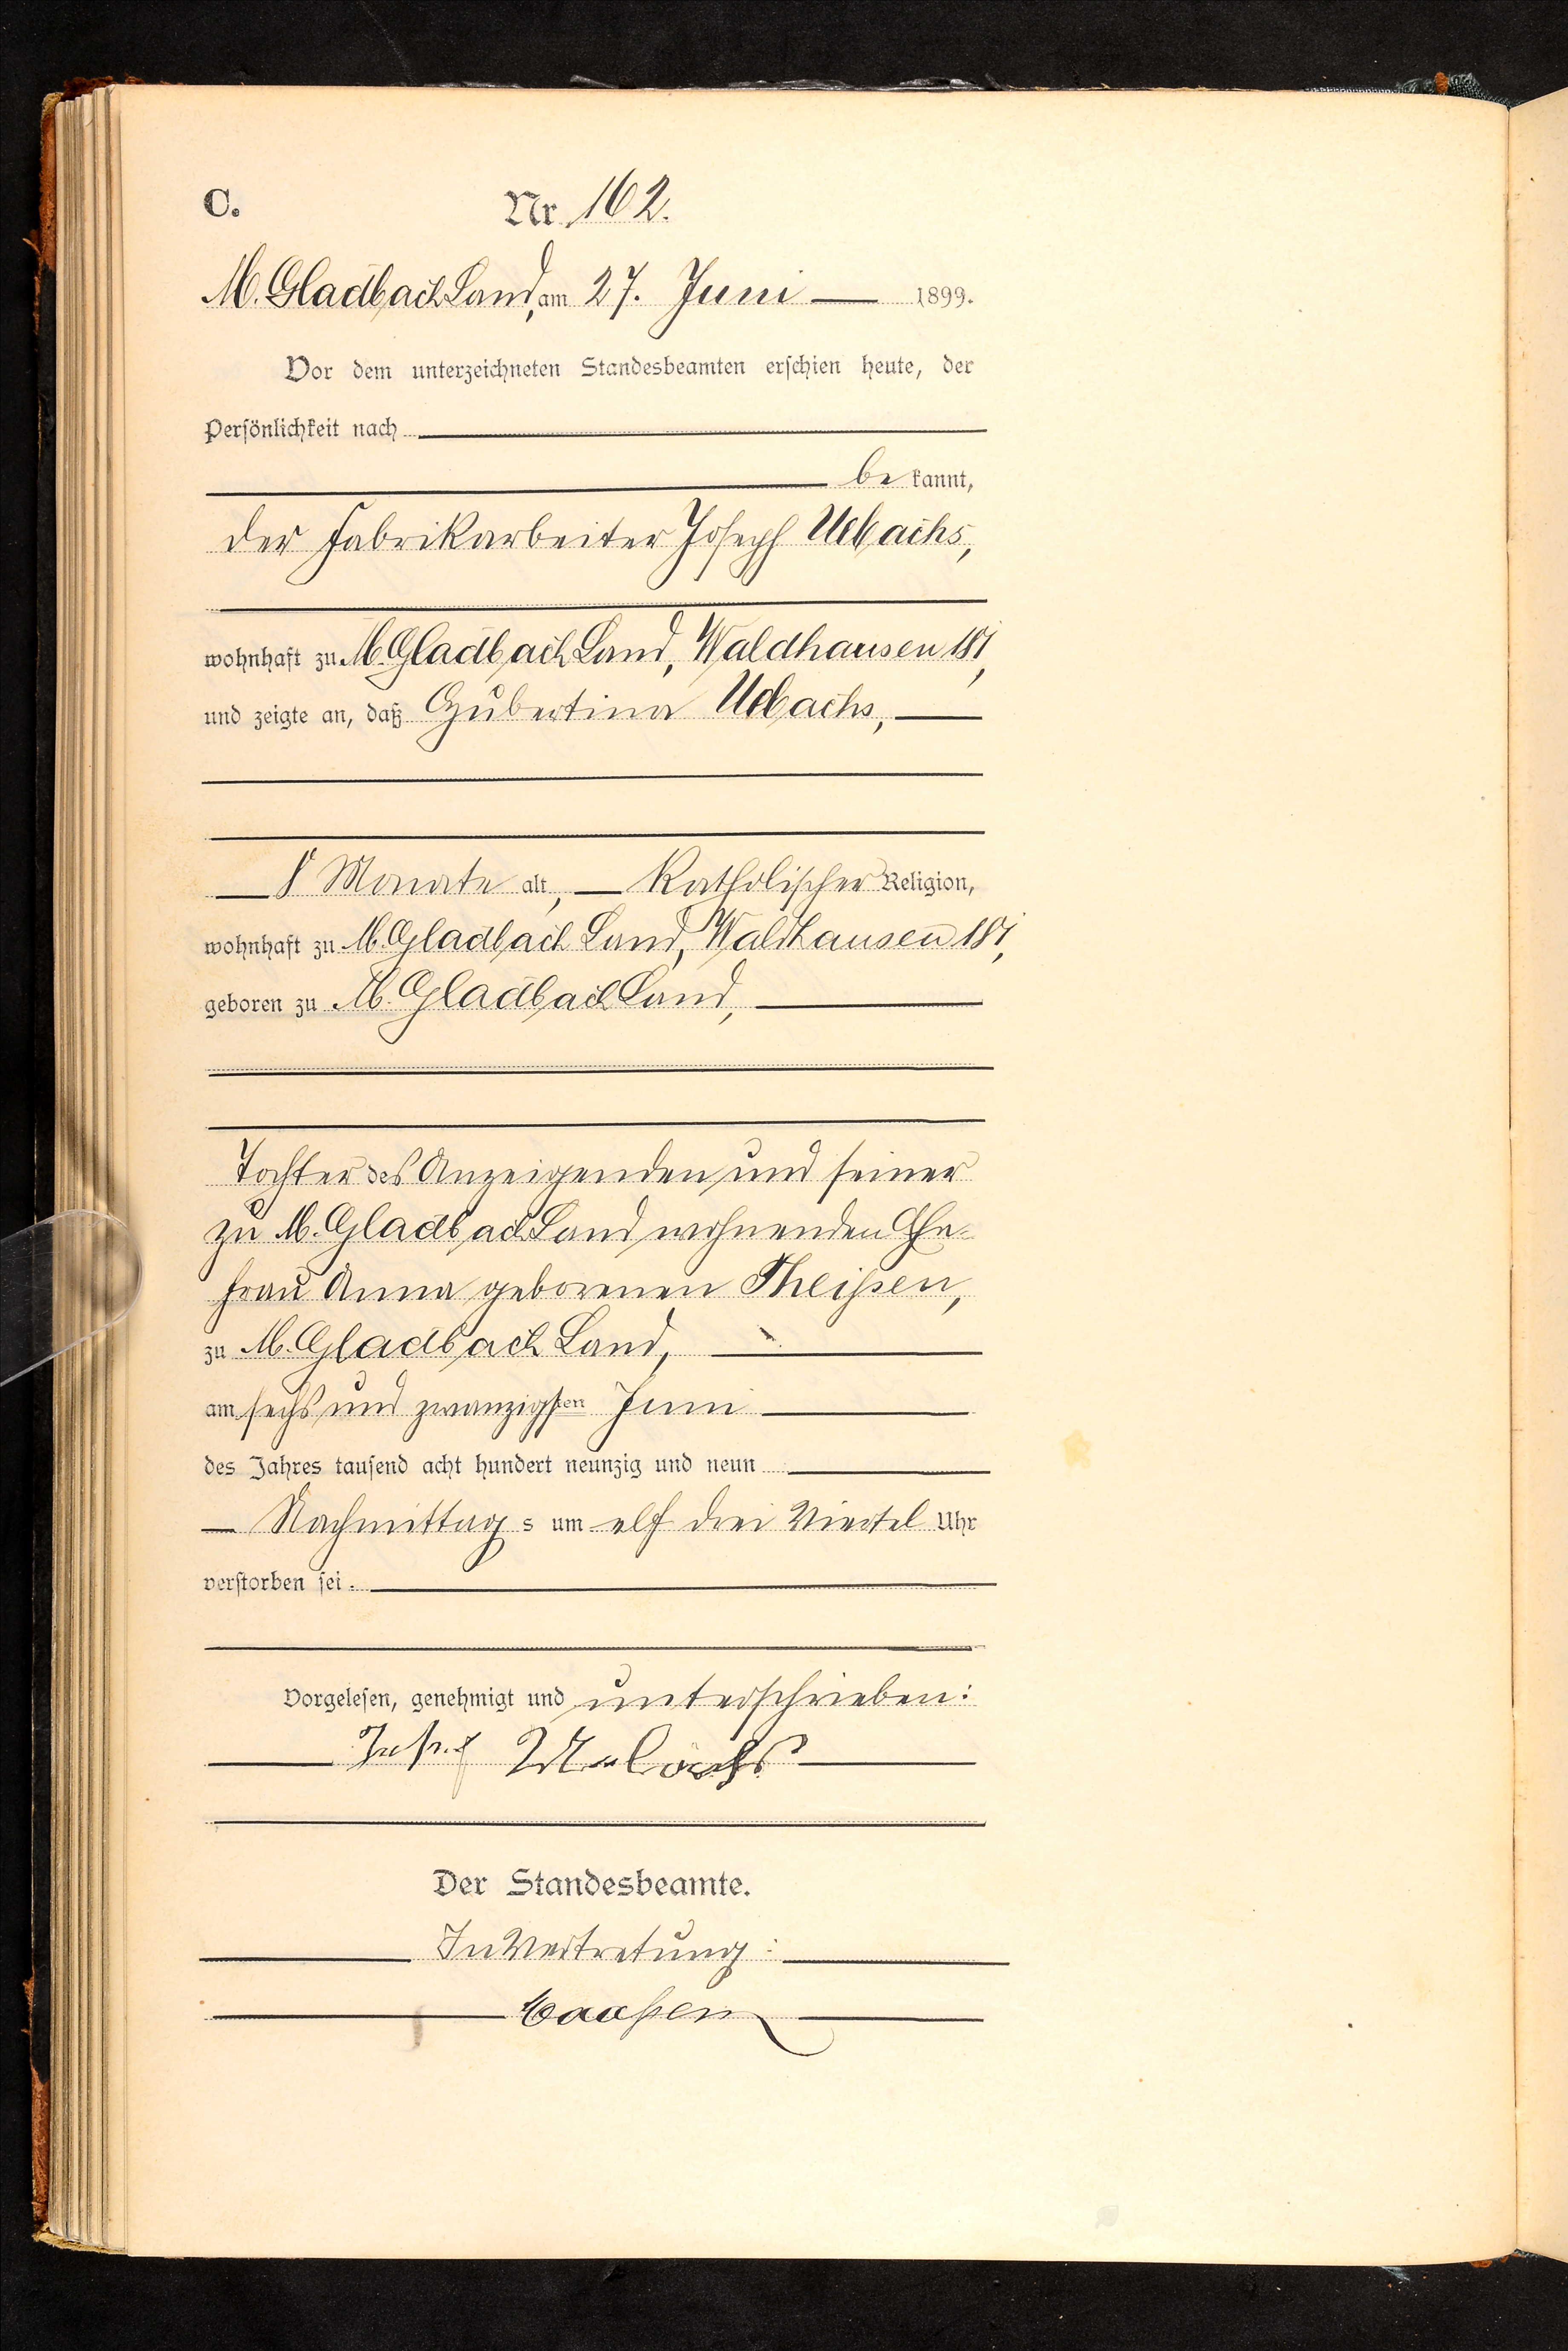 C. Nr. 162.
M. Gladbach Land, am 27. Juni 1899.
Vor dem unterzeichneten Standesbeamten erschien heute, der
Persönlichkeit nach
be kannt,
der Fabrikarbeiter Joseph Uebachs,
wohnhaft zu M. Gladbach Land, Waldhausen 181,
und zeigte an, daß Hubertina Uebachs,
8 Monate alt, katholischer Religion,
wohnhaft zu M. Gladbach Land, Waldhausen 181,
geboren zu M. Gladbach Land,
Tochter des Anzeigenden und seiner
zu M. Gladbach Land wohnenden Ehe-
frau Anna geborenen Theißen,
zu M. Gladbach Land,
am sechs und zwanzigsten Juni
des Jahres tausend acht hundert neunzig und neun
Nachmittag s um elf drei Viertel Uhr
verstorben sei.
Vorgelesen, genehmigt und unterschrieben:
Josef Uebachs
Der Standesbeamte.
In Vertretung:
Caaßen